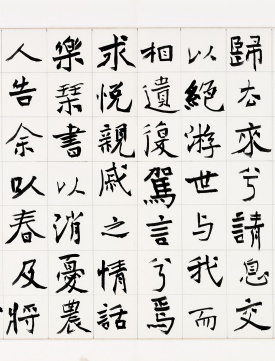 歸去來兮請息交
以絕游世与我而
相遺復駕言兮焉
求悅親戚之情話
樂琹書以消憂農
人告余以春及將